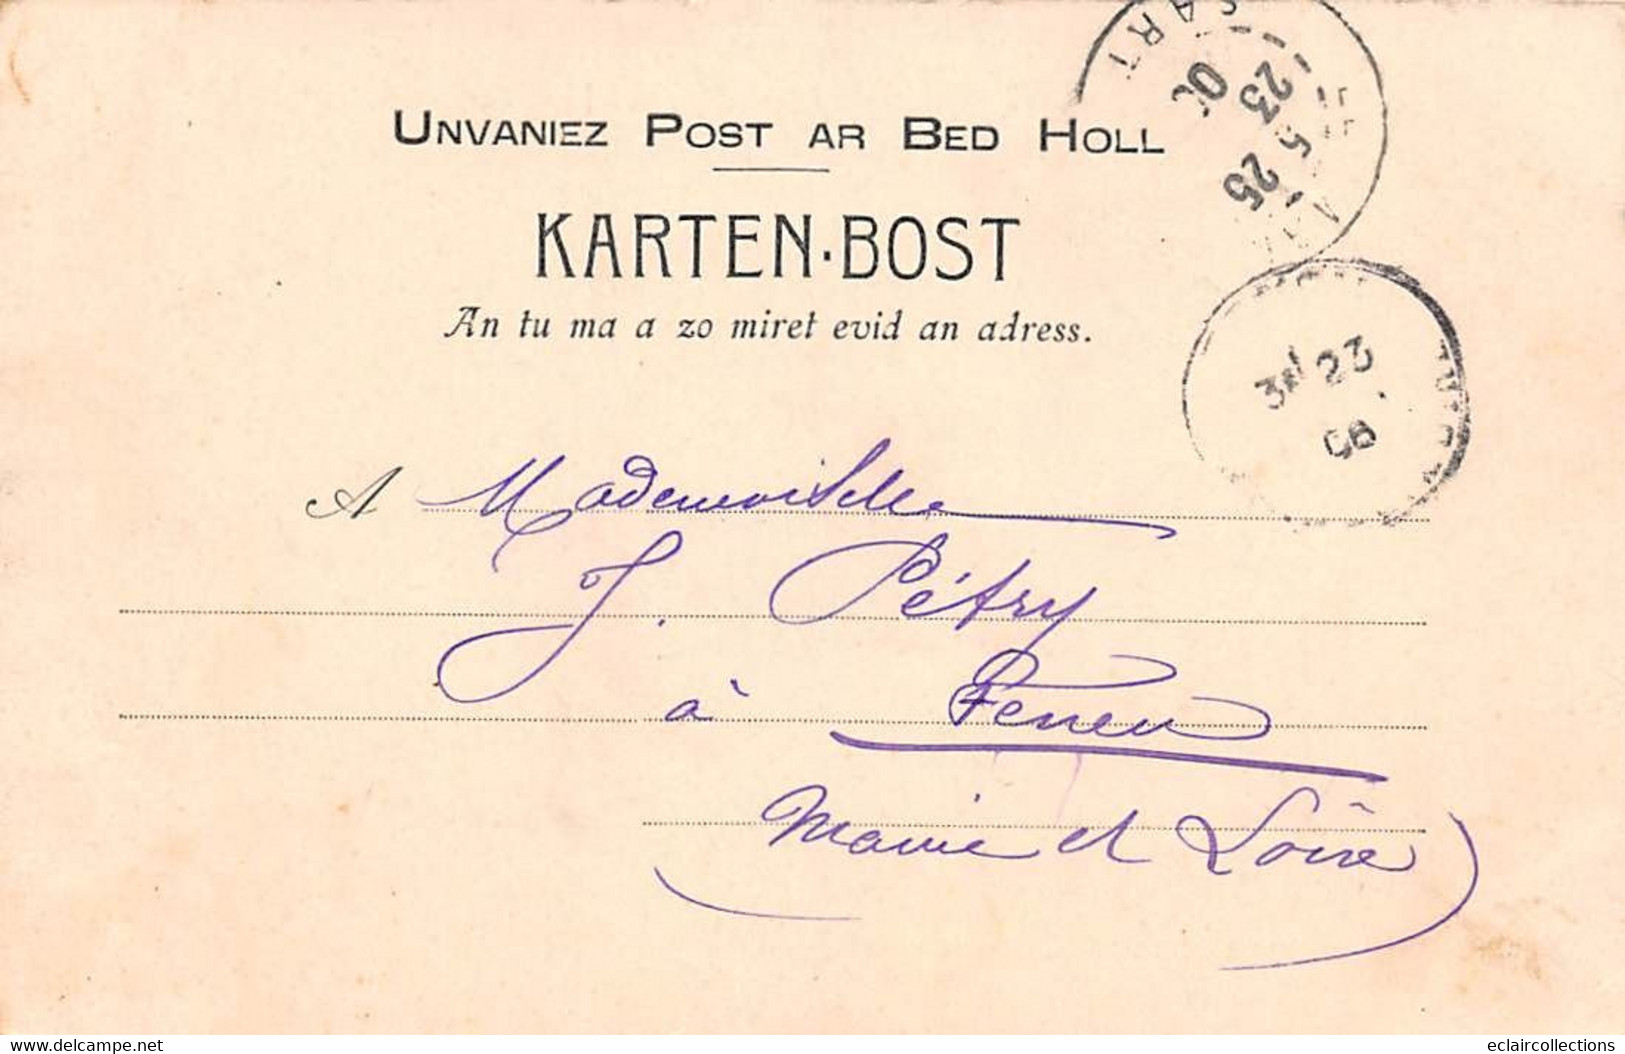 UNVANIEZ POST AR BED HOLL
KARTEN-BOST
An tu ma a zo miret evid an adress.
A Mademoiselle
J. Pétry
à Feneu
(Maine et Loire)
CART
23 5 25
23
06
Delcampe.net
eclaircollections